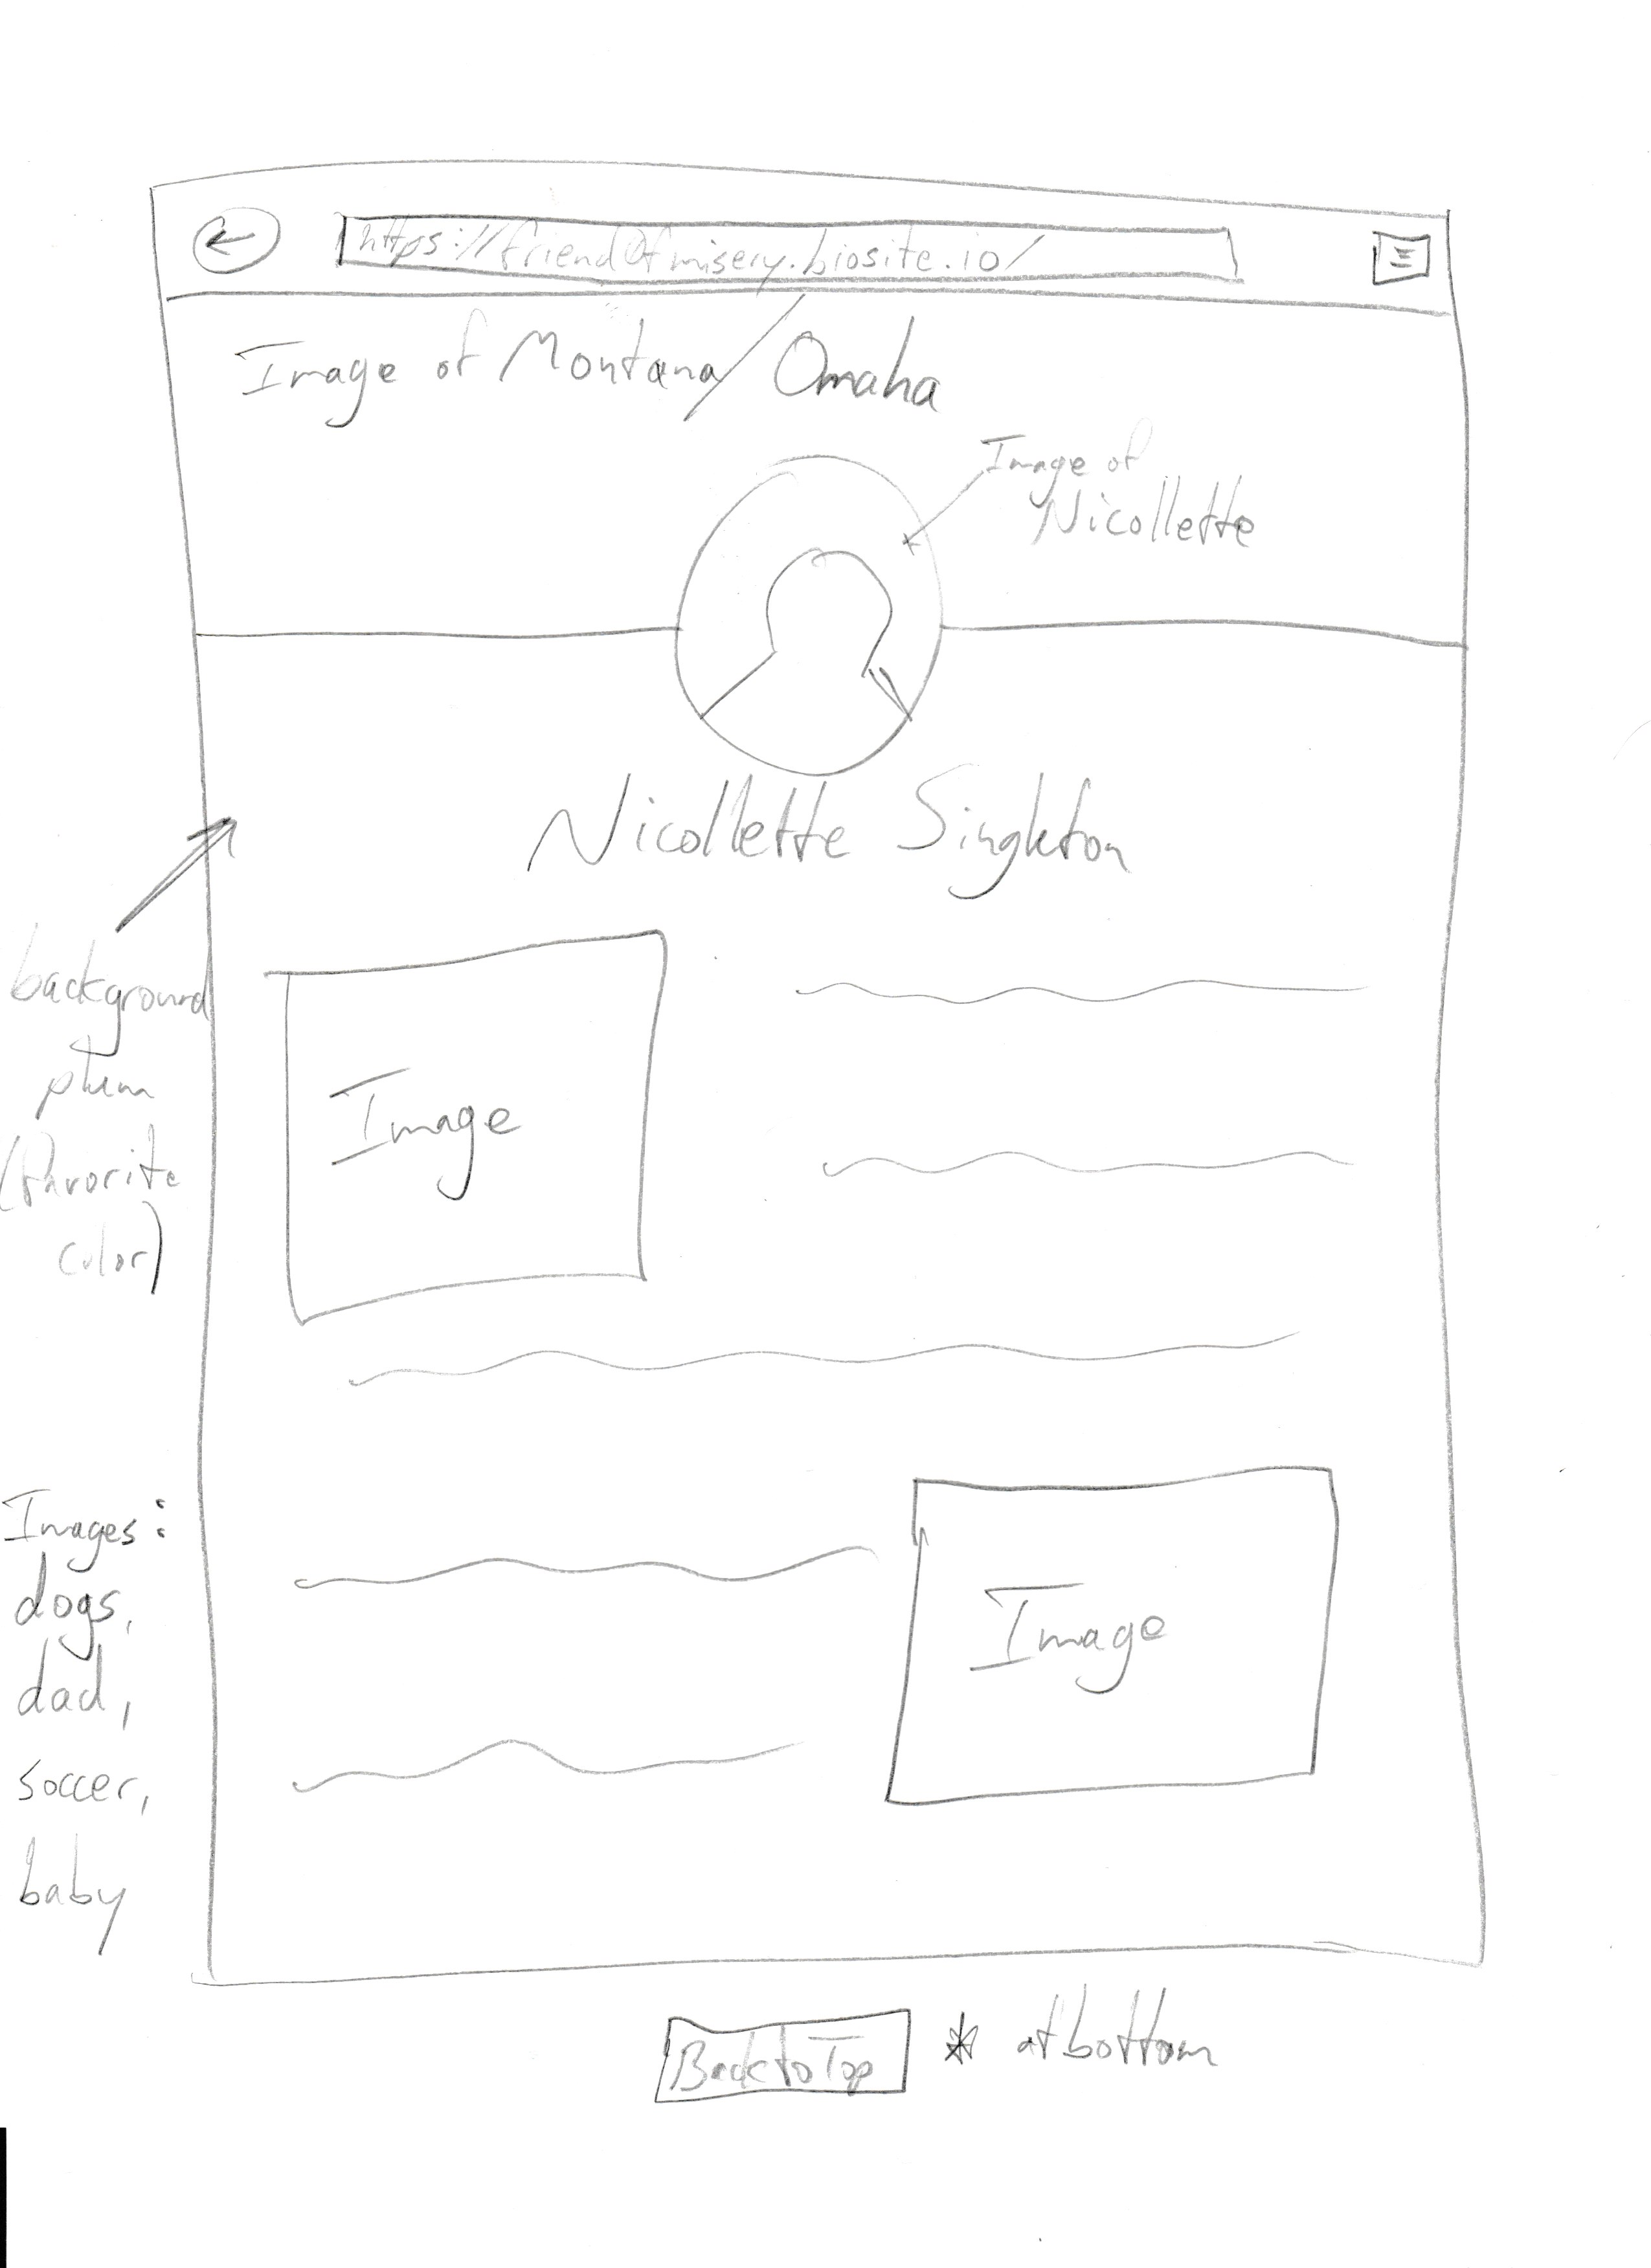 https://friend0fmisery.biosite.io/
Image of Montana/Omaha
Image of
Nicollette
Nicollette Singleton
background
plum
(favorite
color)
Image
Images:
dogs,
dad,
soccer,
baby
Image
Back to Top
* at bottom